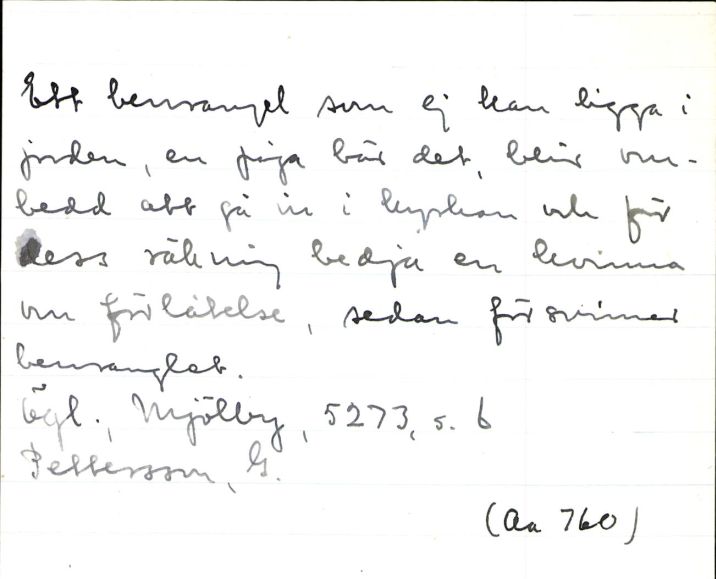 Ett benrangel som ej kan ligga i
jorden, en piga bär det, blir om-
bedd att gå in i kyrkan och för
dess räkning bedja en kvinna
om förlåtelse, sedan försvinner
benranglet.
Ögl., Mjölby, 5273, s. 6
Pettersson, G.
(Aa 760)